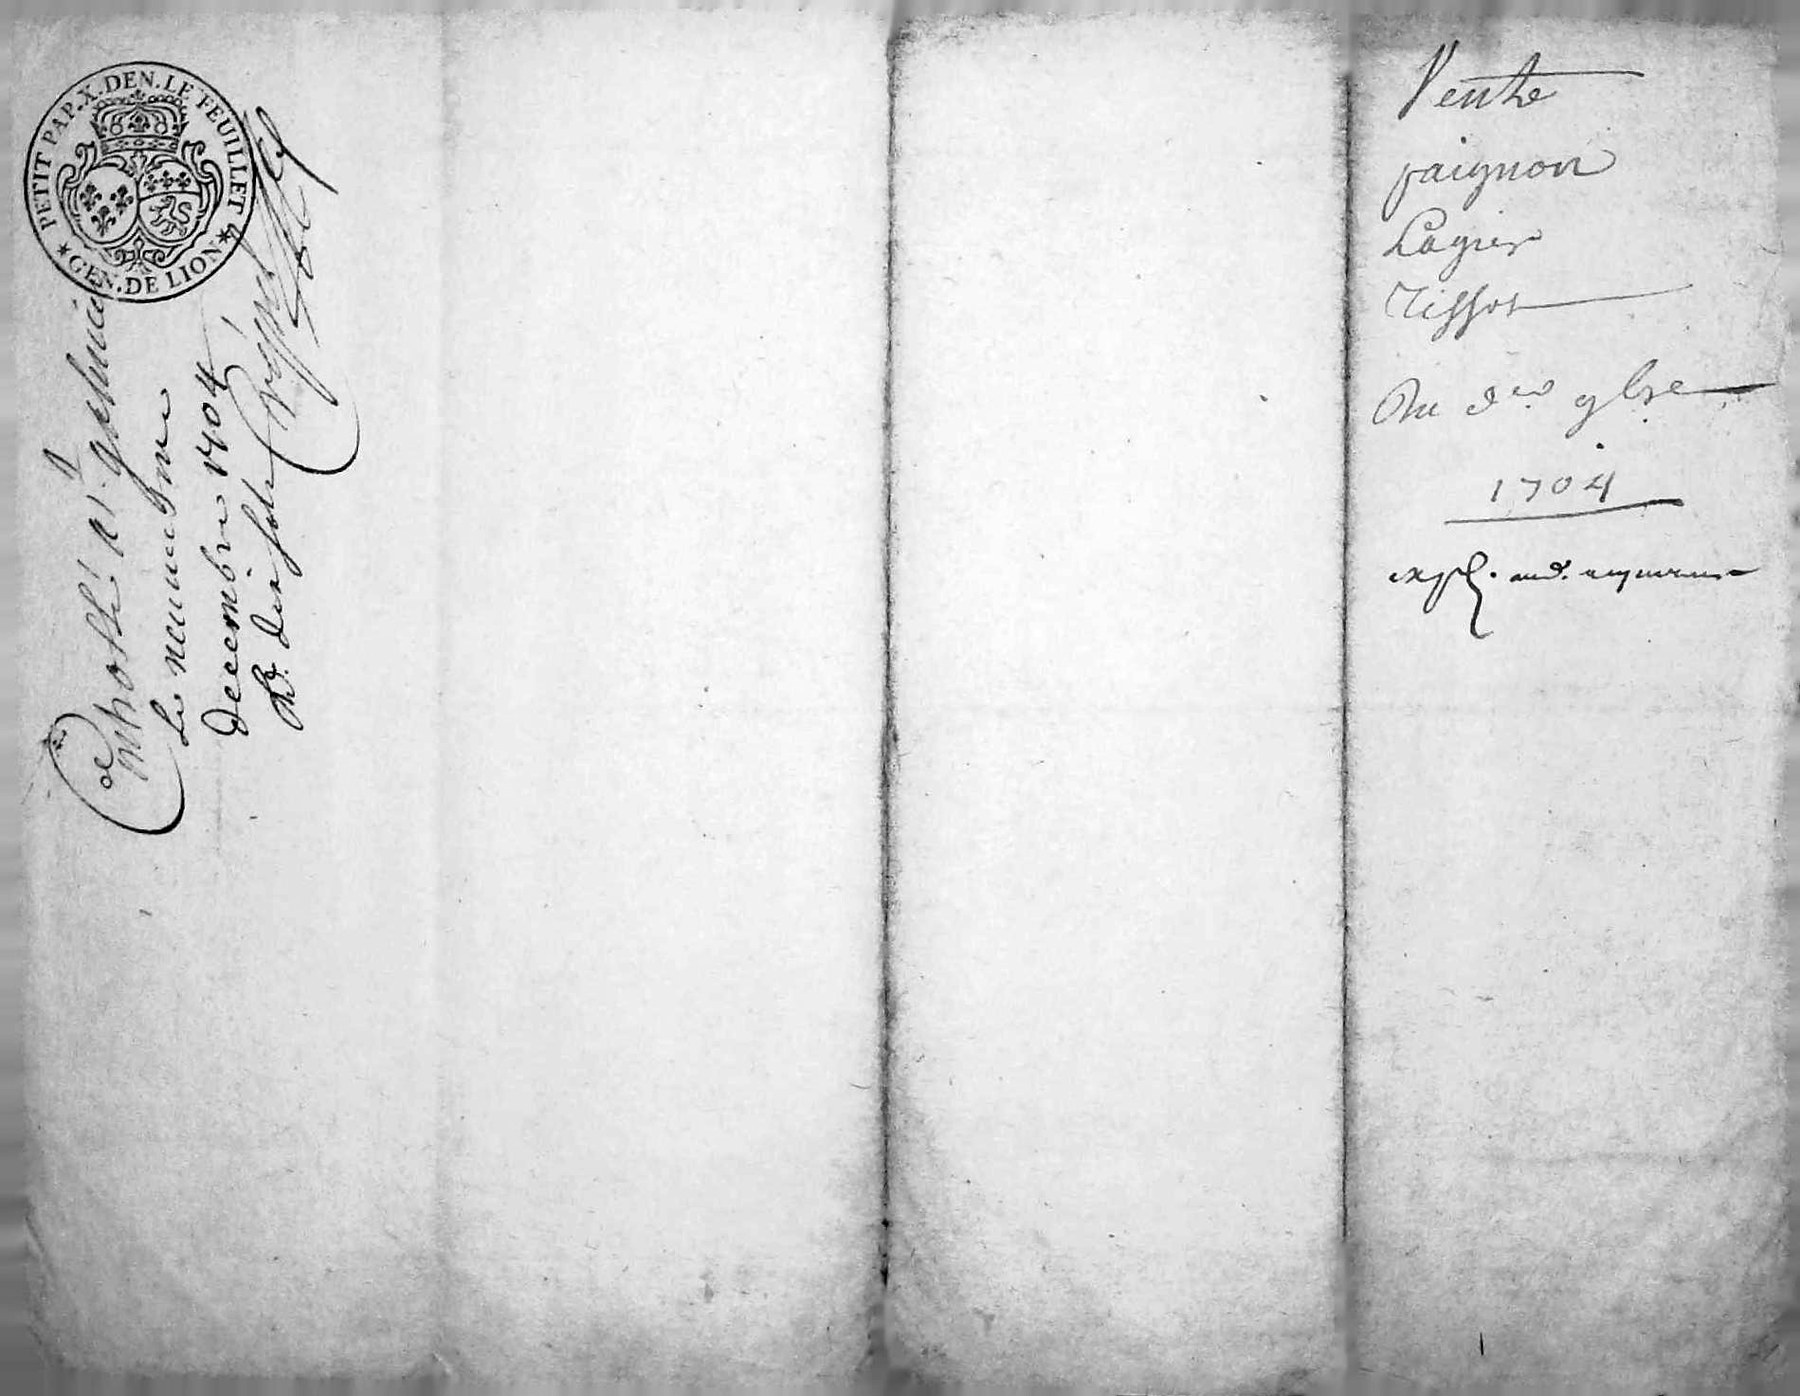 PETIT PAP. X. DEN. LE FEUILLET
GEN. DE LION
Controllé a St
Le neuvieme
decembre 1704
R. dix sols
Vente
paignon
Lagier
Tissot
Du 9bre
1704
expl. aud. acquereur